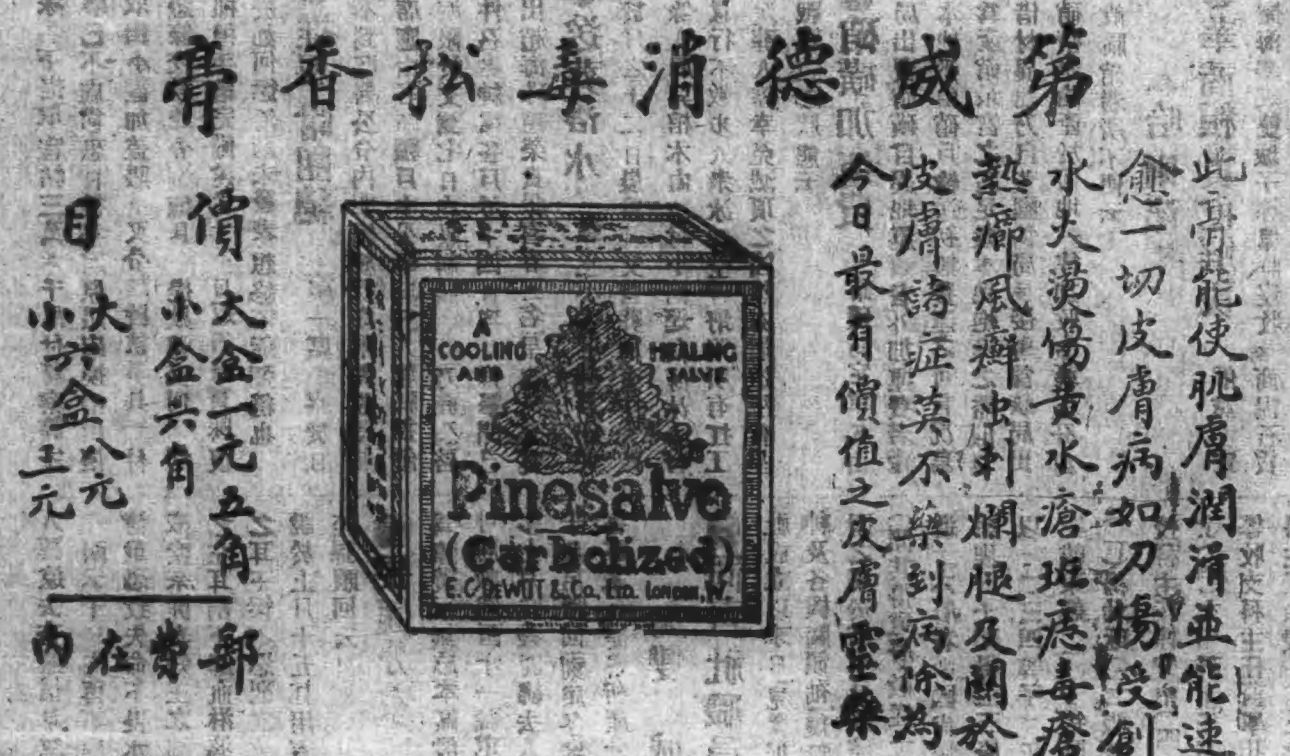 第威德消毒松香膏
此膏能使肌膚潤滑並能速
愈一切皮膚病如刀傷受創
水火燙傷黃水瘡斑痣毒瘡
熱癤風癬虫刺爛腿及關於
皮膚諸症莫不藥到病除為
今日最有價值之皮膚靈藥
A
COOLING
AND
HEALING
SALVE
Pinesalve
(Carbolized)
E.C. DEWITT & Co., Ltd. LONDON, W.
價目
大盒一元五角
小盒六角
大六盒八元
小六盒三元
郵費在內